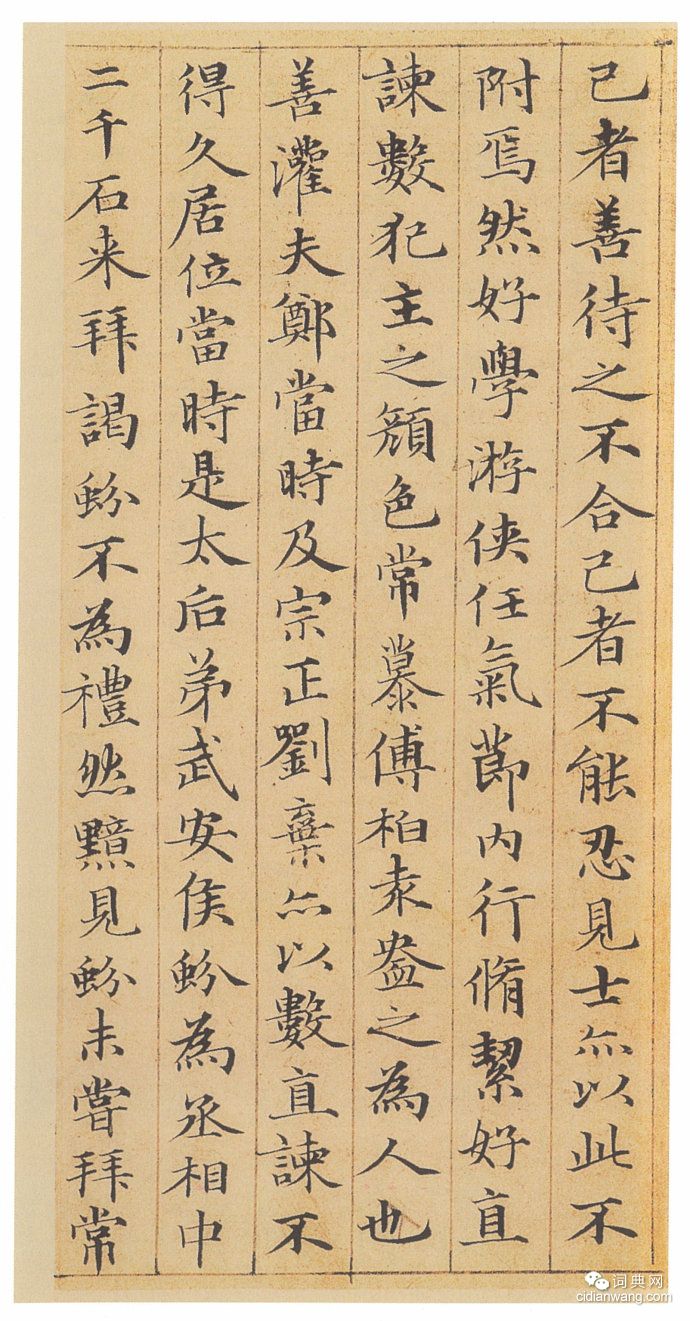 己者善待之不合己者不能忍見士亦以此不
附焉然好學游俠任氣節內行脩絜好直
諫數犯主之顏色常慕傅柏袁盎之為人也
善灌夫鄭當時及宗正劉棄亦以數直諫不
得久居位當時是太后弟武安侯蚡為丞相中
二千石来拜謁蚡不為禮然黯見蚡未嘗拜常
词典网
cidianwang.com